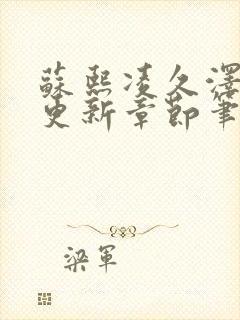 蘇熙凌久澤
更新章節筆
梁軍